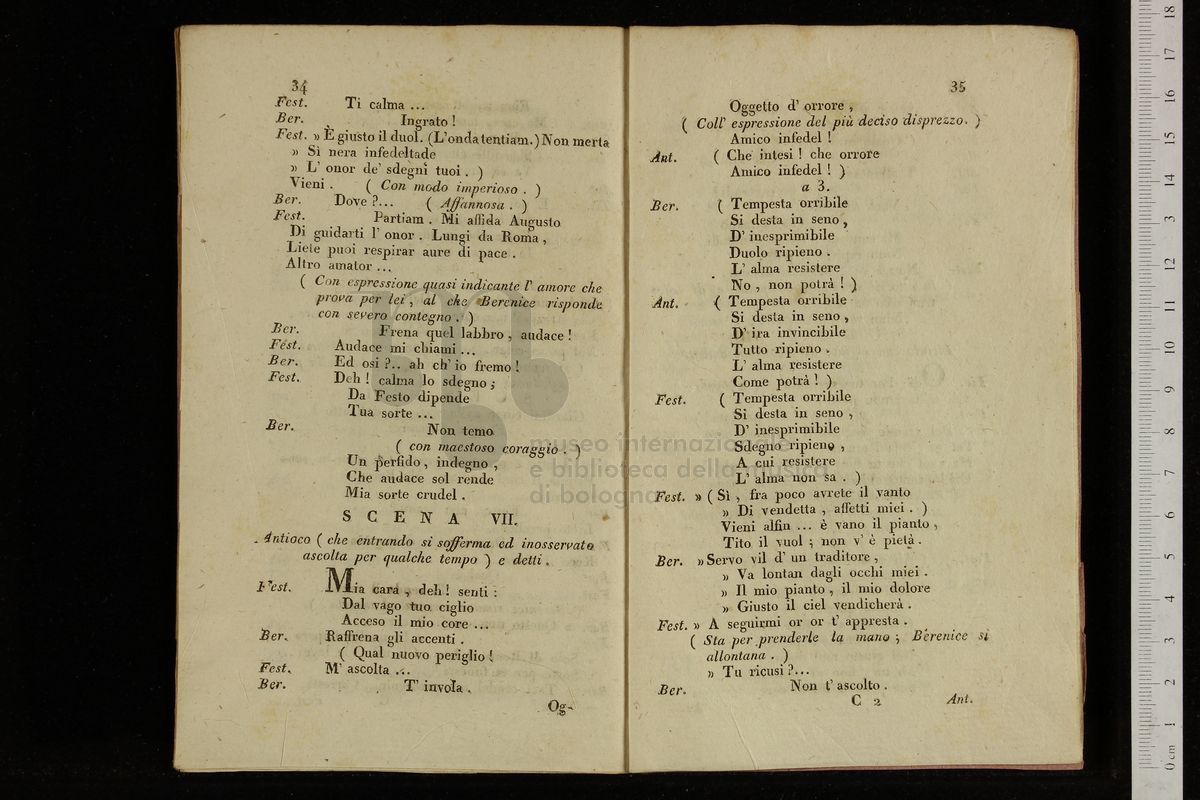 34
Fest. Ti calma ...
Ber. Ingrato !
Fest. » È giusto il duol. (L'onda tentiam.) Non merta
» Sì nera infedeltade
» L' onor de' sdegni tuoi . )
Vieni . ( Con modo imperioso . )
Ber. Dove ?... ( Affannosa . )
Fest. Partiam . Mi affida Augusto
Di guidarti l' onor . Lungi da Roma ,
Liete puoi respirar aure di pace .
Altro amator ...
( Con espressione quasi indicante l' amore che
prova per lei , al che Berenice risponde
con severo contegno . )
Ber. Frena quel labbro , audace !
Fest. Audace mi chiami ...
Ber. Ed osi ?.. ah ch' io fremo !
Fest. Deh ! calma lo sdegno ;
Da Festo dipende
Tua sorte ...
Ber. Non temo
( con maestoso coraggio . )
Un perfido , indegno ,
Che audace sol rende
Mia sorte crudel .
SCENA VII.
Antioco ( che entrando si sofferma ed inosservato
ascolta per qualche tempo ) e detti .
Fest. Mia cara , deh ! senti :
Dal vago tuo ciglio
Acceso il mio core ...
Ber. Raffrena gli accenti .
( Qual nuovo periglio !
Fest. M' ascolta ...
Ber. T' invola .
Og-
35
Oggetto d' orrore ,
( Coll' espressione del più deciso disprezzo . )
Amico infedel !
Ant. ( Che intesi ! che orrore
Amico infedel ! )
a 3.
Ber. ( Tempesta orribile
Si desta in seno ,
D' inesprimibile
Duolo ripieno .
L' alma resistere
No , non potrà ! )
Ant. ( Tempesta orribile
Si desta in seno ,
D' ira invincibile
Tutto ripieno .
L' alma resistere
Come potrà ! )
Fest. ( Tempesta orribile
Si desta in seno ,
D' inesprimibile
Sdegno ripieno ,
A cui resistere
L' alma non sa . )
Fest. » ( Sì , fra poco avrete il vanto
» Di vendetta , affetti miei . )
Vieni alfin ... è vano il pianto ,
Tito il vuol ; non v' è pietà .
Ber. » Servo vil d' un traditore ,
» Va lontan dagli occhi miei .
» Il mio pianto , il mio dolore
» Giusto il ciel vendicherà .
Fest. » A seguirmi or or t' appresta .
( Sta per prenderle la mano ; Berenice si
allontana . )
» Tu ricusi ?...
Ber. Non t' ascolto .
C 2 Ant.
museo internazionale
e biblioteca della musica
di bologna
0 cm 1 2 3 4 5 6 7 8 9 10 11 12 13 14 15 16 17 18